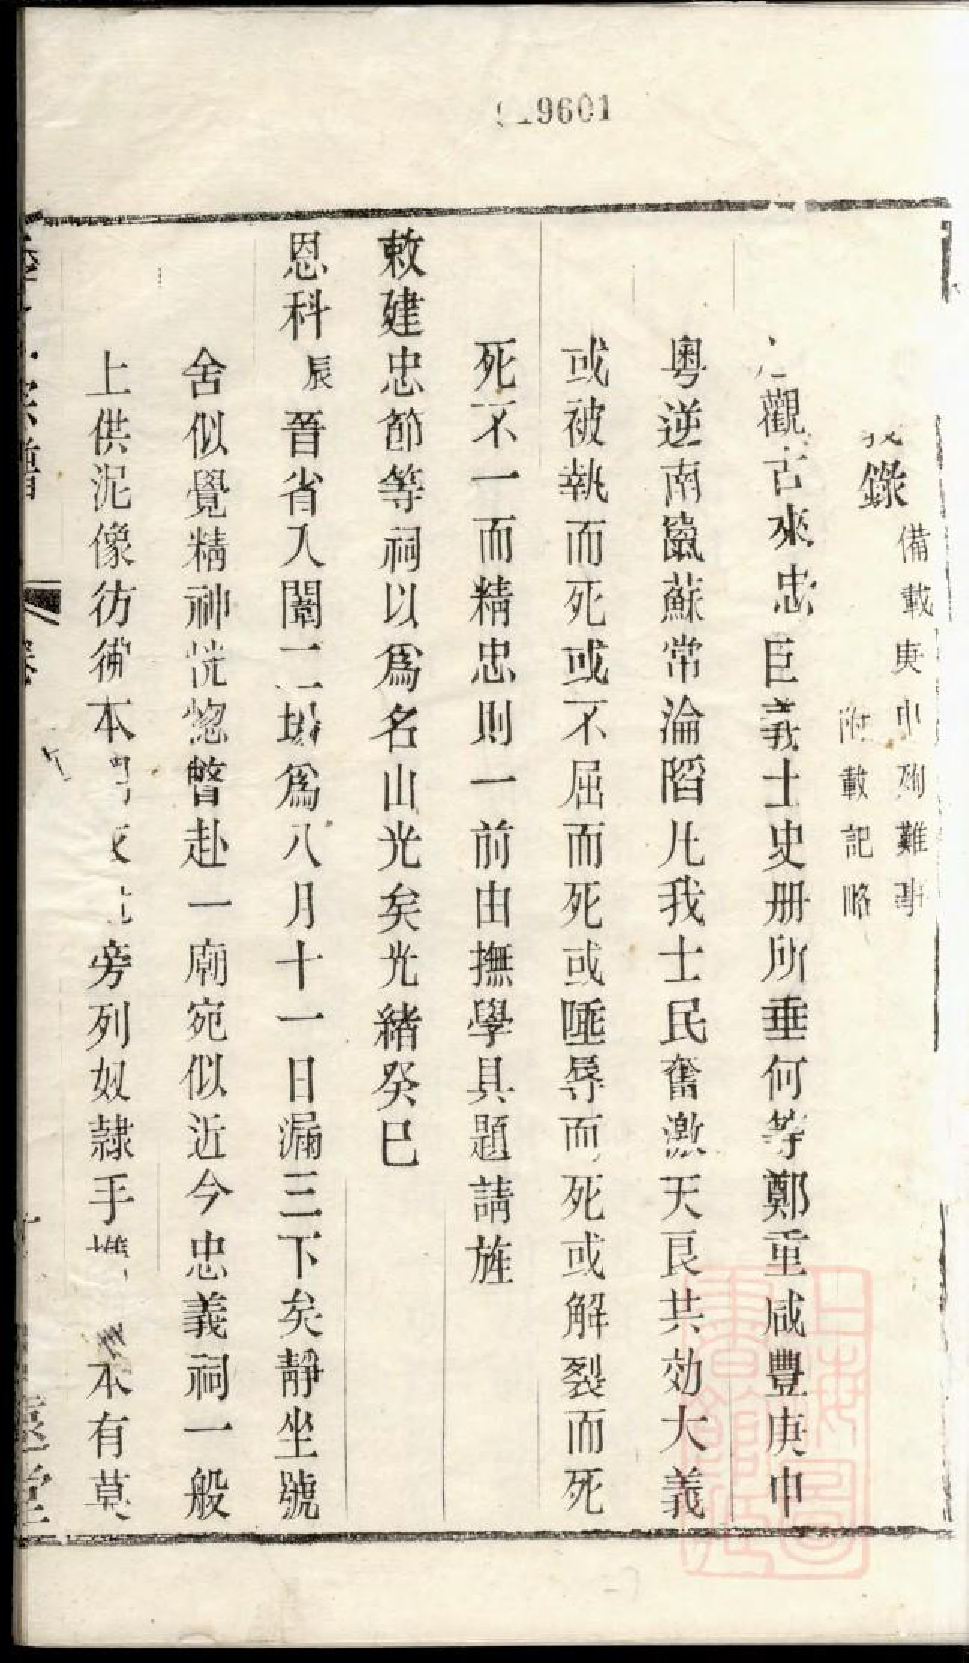 9601
錄 備載庚申殉難事
附載記略
觀古來忠臣義士史册所垂何等鄭重咸豐庚申
粵逆南竄蘇常淪陷凡我士民奮激天良共効大義
或被執而死或不屈而死或唾辱而死或解裂而死
死不一而精忠則一前由撫學具題請旌
敕建忠節等祠以爲名山光矣光緒癸巳
恩科辰晉省入闈二塲爲八月十一日漏三下矣靜坐號
舍似覺精神恍惚瞥赴一廟宛似近今忠義祠一般
上供泥像彷彿本 旁列奴隸手 本有莫